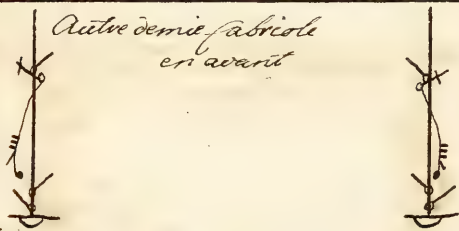 Autre demie Cabriole
en avant